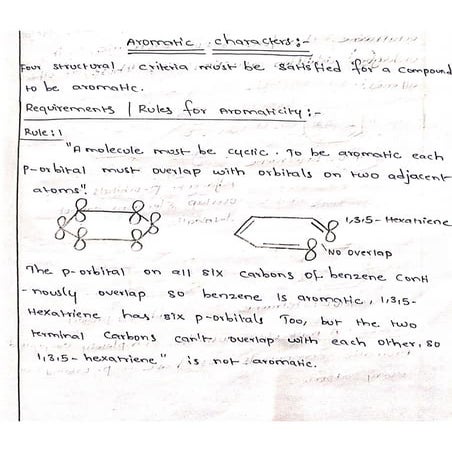 Aromatic characters :-
Four structural criteria must be satisfied for a compound
to be aromatic.
Requirements / Rules for Aromaticity :-
Rule : 1
"A molecule must be cyclic. To be aromatic each
P-orbital must overlap with orbitals on two adjacent
atoms".
1,3,5-Hexatriene
No overlap
The p-orbital on all six carbons of benzene conti
-nously overlap so benzene is aromatic, 1,3,5-
Hexatriene has six p-orbitals Too, but the two
terminal Carbons can't overlap with each other, so
1,3,5-hexatriene" is not aromatic.